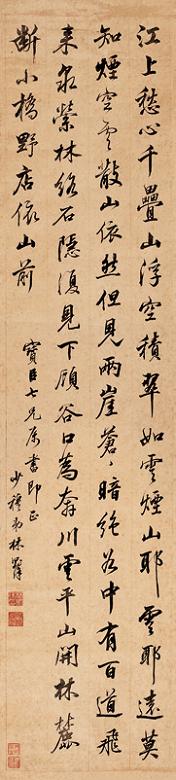 江上愁心千疊山浮空積翠如雲煙山耶雲耶遠莫
知煙空雲散山依然但見兩崖蒼々暗絕谷中有百道飛
來泉縈林絡石隱復見下顧谷口為奔川雲平山開林麓
斷小橋野店依山前
寶臣七兄屬書即正
少穆弟林則徐